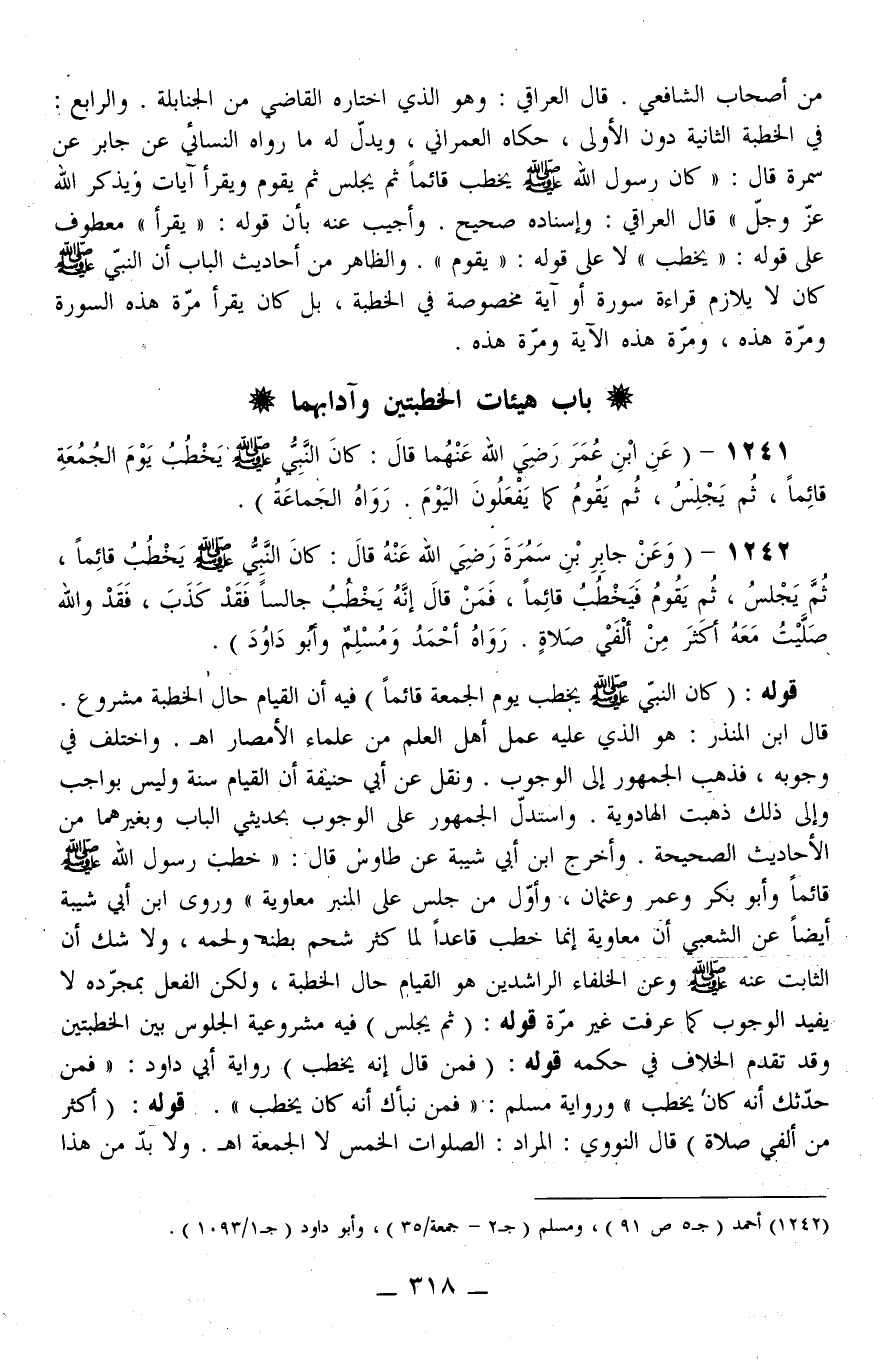 من أصحاب الشافعي . قال العراقي : وهو الذي اختاره القاضي من الحنابلة . والرابع :
في الخطبة الثانية دون الأولى ، حكاه العمراني ، ويدلّ له ما رواه النسائي عن جابر عن
سمرة قال : « كان رسول الله ﷺ يخطب قائماً ثم يجلس ثم يقوم ويقرأ آيات ويذكر الله
عزّ وجلّ » قال العراقي : وإسناده صحيح . وأجيب عنه بأن قوله : « يقرأ » معطوف
على قوله : « يخطب » لا على قوله : « يقوم » . والظاهر من أحاديث الباب أن النبيّ ﷺ
كان لا يلازم قراءة سورة أو آية مخصوصة في الخطبة ، بل كان يقرأ مرّة هذه السورة
ومرّة هذه ، ومرّة هذه الآية ومرّة هذه .
باب هيئات الخطبتين وآدابهما
١٢٤١ – ( عَنِ ابْنِ عُمَرَ رَضِيَ الله عَنْهُما قالَ : كانَ النَّبِيُّ ﷺ يَخْطُبُ يَوْمَ الجُمُعَةِ
قائِماً ، ثُم يَجْلِسُ ، ثُم يَقُومُ كما يَفْعَلُونَ اليَوْمَ . رَوَاهُ الجَماعَةُ ) .
١٢٤٢ – ( وَعَنْ جابِرِ بْنِ سَمُرَةَ رَضِيَ الله عَنْهُ قالَ : كانَ النَّبِيُّ ﷺ يَخْطُبُ قائِماً ،
ثُمَّ يَجْلسُ ، ثُم يَقُومُ فَيَخْطُبُ قائِماً ، فَمَنْ قالَ إنَّهُ يَخْطُبُ جالساً فَقَدْ كَذَبَ ، فَقَدْ والله
صَلَّيْتُ مَعَهُ أكثَرَ مِنْ ألْفَيْ صَلاةٍ . رَوَاهُ أحْمَدُ وَمُسْلِمٌ وأبُو دَاوُدَ ) .
قوله : ( كان النبيّ ﷺ يخطب يوم الجمعة قائماً ) فيه أن القيام حال الخطبة مشروع .
قال ابن المنذر : هو الذي عليه عمل أهل العلم من علماء الأمصار اهـ . واختلف في
وجوبه ، فذهب الجمهور إلى الوجوب . ونقل عن أبي حنيفة أن القيام سنة وليس بواجب
وإلى ذلك ذهبت الهادوية . واستدلّ الجمهور على الوجوب بحديثي الباب وبغيرهما من
الأحاديث الصحيحة . وأخرج ابن أبي شيبة عن طاوس قال : « خطب رسول الله ﷺ
قائماً وأبو بكر وعمر وعثمان ، وأوّل من جلس على المنبر معاوية » وروى ابن أبي شيبة
أيضاً عن الشعبي أن معاوية إنما خطب قاعداً لما كثر شحم بطنه ولحمه ، ولا شك أن
الثابت عنه ﷺ وعن الخلفاء الراشدين هو القيام حال الخطبة ، ولكن الفعل بمجرّده لا
يفيد الوجوب كما عرفت غير مرّة قوله : ( ثم يجلس ) فيه مشروعية الجلوس بين الخطبتين
وقد تقدم الخلاف في حكمه قوله : ( فمن قال إنه يخطب ) رواية أبي داود : « فمن
حدّثك أنه كان يخطب » ورواية مسلم : « فمن نبأك أنه كان يخطب » . قوله : ( أكثر
من ألفي صلاة ) قال النووي : المراد : الصلوات الخمس لا الجمعة اهـ . ولا بدّ من هذا
(١٢٤٢) أحمد ( جـ٥ ص ٩١ ) ، ومسلم ( جـ٢ – جمعة/٣٥ ) ، وأبو داود ( جـ١٠٩٣/١ ) .
ــ ٣١٨ ــ